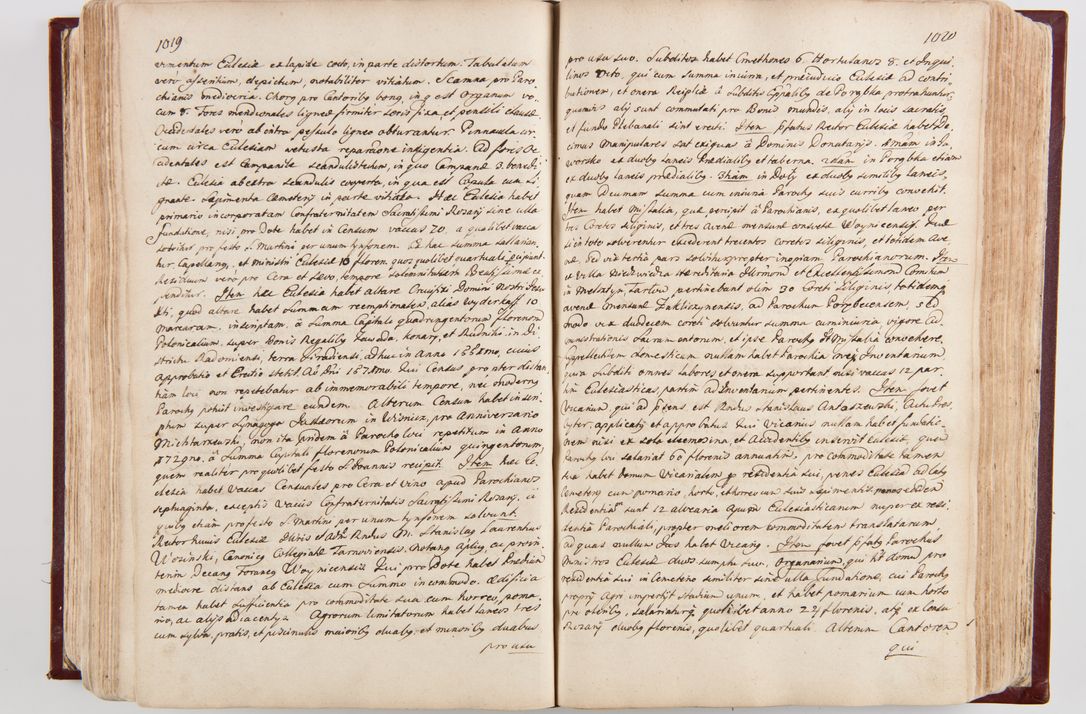 1019
vimentum Eclesiæ ex lapide cocto, in parte distortum. Tabulatum
vero asseritium, depictum, notabiliter vitiatum. Scamna pro Paro-
chianis mediocria. Chorq pro Cantoribq bonq, in q est Organum vo-
cum 8. Fores meridionales ligneæ firmiter
Occidentales verò ab intro pessulo ligneo obturantur.
cum circa Eclesiam vetusta reparatione indigentia. Ad fores Oc-
cidentales est Campanile scandulis tectum, in quo Campanæ 3. bened
ctæ. Eclesia ab extra scandulis cooperta, in qua est Copula cum Si-
gnante. Sepimenta Cæmeterij in parte vitiata. Hæc Eclesia habet
primario incorporatam Confraternitatem Sacratissimi Rosarij sine ulla
fundatione, nisi pro Dote habet in Censum vaccas 70, a qualibet vacca
solvitur pro festo S. Martini per unum tynfonem. Ex hac summa
tur Capellanq, et ministri Eclesiæ 10 floren. quos quolibet quartuale
Residuum verò pro Cera et Sevo, tempore solemnitatum Beatissimæ ex-
penditur. Item hæc Eclesia habet altare Crucifixi Domini Nostri Jesu
Xti, quod altare habet Summam reemptionalem, alias wyderkaff 10
marcarum, inscriptam à Summa Capitali quadringentorum florenorum
Polonicalium, super Bonis Regalibq Zawada, Konary, et Rudniki, in Di-
strictu Radomiensi, terra Siradiensi, adhuc in Anno
approbatio et Erectio stetit Aô Dni Qui Census, propter distan-
tiam loci non repetebatur ab immemorabili tempore, nec modernq
Parochq potuit investigare eundem. Alterum Censum habet inscri-
ptum super Synagoga Judæorum in Wisnicz, pro Anniversario
non ita pridem à Parocho loci repetitum in Anno
1729no. à Summa Capitali florenorum Polonicalium quingentorum,
quem realiter pro quolibet festo S. Joannis recipit. Item hæc E-
clesia habet vaccas Censuales pro Cera et vino apud Parochianos
septuaginta, exceptis vaccis Confraternitatis Sacratissimi Rosarij, à
quibq etiam pro festo S. Martini per unum tynfonem solvunt.
Rector huius Eclesiæ Illris et Adm Rndus M. Stanislaq Laurentius
Wosinski, Canonicq Collegiatæ Tarnoviensis, Notariq Aplicq, ac pro in-
terim Decanq Foraneq Woynicensis. Qui pro Dote habet Prædium
mediocre distans ab Eclesia cum summo incommodo. Ædificia
tamen habet sufficientia pro commoditate sua cum horreo, poma-
rio, ac alijs adiacentijs. Agrorum limitatorum habet laneos tres
cum sylva, pratis, et piscinulis maioribq duabq, et minoribq duabus
pro usu

1020
pro usu suo. Subditos habet Cmethones 6. Hortulanos 8. et Inqui-
linos Octo, qui cum summa iniuria, et præiudicio Eclesiæ ad contri-
butionem, et onera Reiplcæ à Subditis de Porąbka protrahuntur,
quamvis alij sunt commutati pro Bonis mundis, alij in locis sacratis,
et fundo Plebanali sint erecti. Item pfatus Rector Eclesiæ habet De-
cimas Manipulares sat exiguas à Dominis Donatarijs. 1mam in Ja-
worsko ex duobq laneis Prædialibq et taberna. 2dam in Porąbka etiam
ex duobq laneis prædialibq. 3tiam in Doły ex duobq similibq laneis,
quam Decimam summa cum iniuria Parochq suis curribq convehit.
Item habet Missalia, quæ percipit à Parochianis, ex quolibet laneo per
tres Coretos siliginis, et tres Avenæ mensuræ consuetæ Woyniciensis. Quæ
si in toto solverentur excederent trecentos coretos siliginis, et totidem Ave-
næ, sed vix tertia pars solvitur propter inopiam Parochianorum. Item
ex Villa Niedzwiedza Hæreditaria Illrium et Excellentissimorum Comitum
in Melsztyn, Tarłow pertinebant olim 30 Coreti siliginis, totidemq
avenæ mensuræ Zakliczynensis, ad Parochum Porębecensem, sed
modo vix duodecim coreti solvuntur summa cum iniuria, vigore Ad-
ministrationis Sacramentorum, et ipse Parochq Missalia convehere,
Suppellectilem domesticam nullam habet Parochia neq Inventarium,
quia subditi omnes labores et onera supportant nisi vaccas 12 par-
tim Eclesiasticas partim ad Inventarium pertinentes. Item fovet
Vicarium, qui ad præsens est Rndus Stanislaus Antaszewski, Actu Præs-
byter, applicatq et approbatus. Qui Vicarius nullam habet fundatio-
nem nisi ex sola eleemosina, et Accidentibq inservit Eclesiæ, quem
Parochq loci salariat 60 florenis annuatim, pro commoditate tamen
sua habet Domum Vicarialem p residentia sui, penes Eclesiam ad latq
Cæmeterij cum pomario, horto, et horreo cum suis sepimentis, penes eandem
Residentiam sunt 12 alvearia Apum Eclesiasticarum nuper ex resi-
dentia Parochiali, propter meliorem commoditatem translatarum,
ad quas nullum Jus habet Vicariq. Item fovet pfatq Parochus
Ministros Eclesiæ duos sumptu suo, Organarium, qui ht domum pro
residentia sui in Cæmeterio similiter sine ulla fundatione, cui Parochq
proprij Agri impertijt stadium unum, et habet pomarium cum horto
pro oleribq, salariaturq quolibet anno 22 florenis, atq ex Censu
Rosarij duobq florenis, quolibet quartuali. Alterum Cantorem
qui